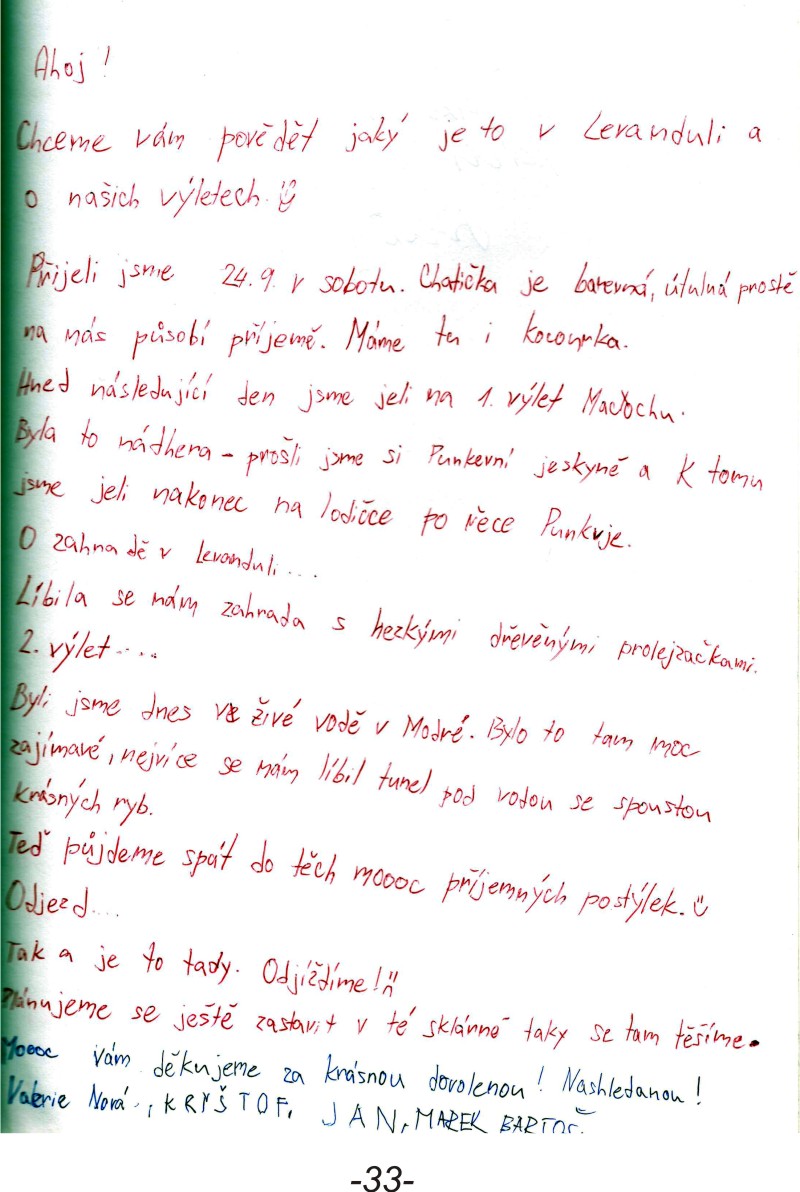 Ahoj!
Chceme vám povědět jaký je to v Levanduli a
o našich výletech.
Přijeli jsme 24.9. v sobotu. Chatička je barevná, útulná prostě
na nás působí příjemě. Máme tu i kocourka.
Hned následující den jsme jeli na 1. výlet Macochu.
Byla to nádhera - prošli jsme si Punkevní jeskyně a k tomu
jsme jeli nakonec na lodičce po řece Punkvje.
O zahradě v Levanduli....
Líbila se nám zahrada s hezkými dřevěnými prolejzačkami.
2. výlet....
Byli jsme dnes ve živé vodě v Modré. Bylo to tam moc
zajímavé, nejvíce se nám líbil tunel pod vodou se spoustou
krásných ryb.
Teď půjdeme spát do těch moooc příjemných postýlek.
Odjezd....
Tak a je to tady. Odjíždíme!
Plánujeme se ještě zastavit v té sklárně taky se tam těšíme.
Moooc vám děkujeme za krásnou dovolenou! Nashledanou!
Valerie Nová, KRYŠTOF, JAN, MAREK BARTOŠ
-33-